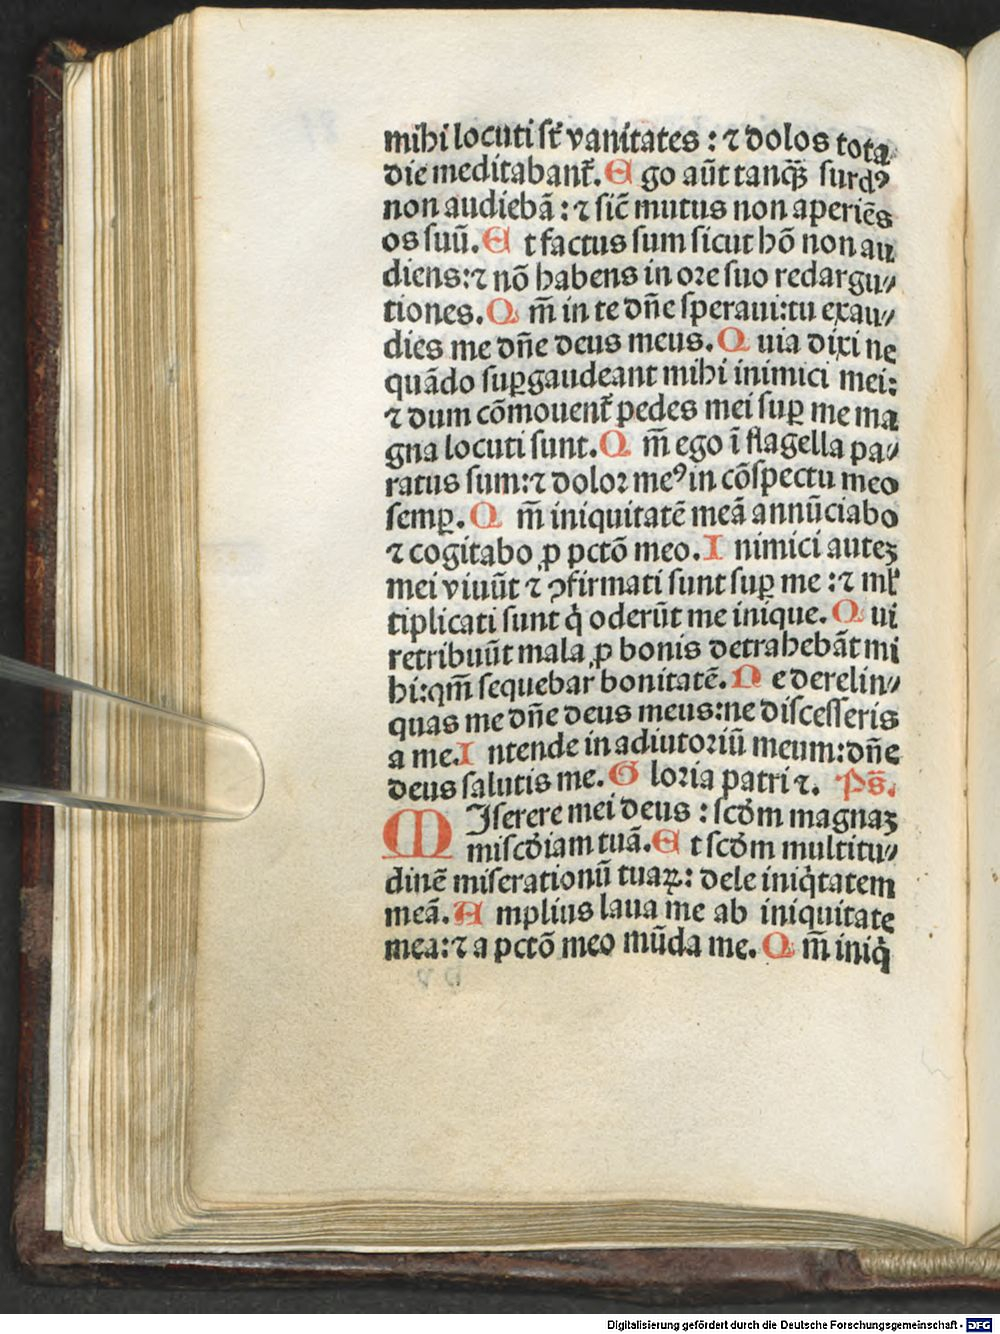 mihi locuti sũt vanitates : ⁊ dolos tota
die meditabant᷑. E go aũt tanq̃ꝫ surdꝰ
non audiebã : ⁊ sic̃ mutus non aperiẽs
os suũ. E t factus sum sicut hõ non au
diens: ⁊ nõ habens in ore suo redargu⸗
tiones. Q m̃ in te dñe speraui: tu exau⸗
dies me dñe deus meus. Q uia dixi ne
quãdo suꝑgaudeant mihi inimici mei:
⁊ dum cõmouent᷑ pedes mei suꝑ me ma
gna locuti sunt. Q m̃ ego ĩ flagella pa⸗
ratus sum: ⁊ dolor meꝰ in cõspectu meo
semꝑ. Q m̃ iniquitatẽ meã annũciabo
⁊ cogitabo ꝓ pctõ meo. I nimici auteꝫ
mei viuũt ⁊ ꝯfirmati sunt suꝑ me : ⁊ ml̃
tiplicati sunt q̇ oderũt me inique. Q ui
retribuũt mala ꝓ bonis detrahebãt mi
hi: qm̃ sequebar bonitatẽ. N e derelin⸗
quas me dñe deus meus: ne discesseris
a me. I ntende in adiutoriũ meum: dñe
deus salutis me. G loria patri ⁊. Ps̃.
M Iserere mei deus : scd̃m magnaꝫ
miscd̃iam tuã. E t scd̃m multitu⸗
dinẽ miserationũ tuaꝝ: dele iniq̇tatem
meã. A mplius laua me ab iniquitate
mea: ⁊ a pctõ meo mũda me. Q m̃ iniq̇
Digitalisierung gefördert durch die Deutsche Forschungsgemeinschaft - DFG